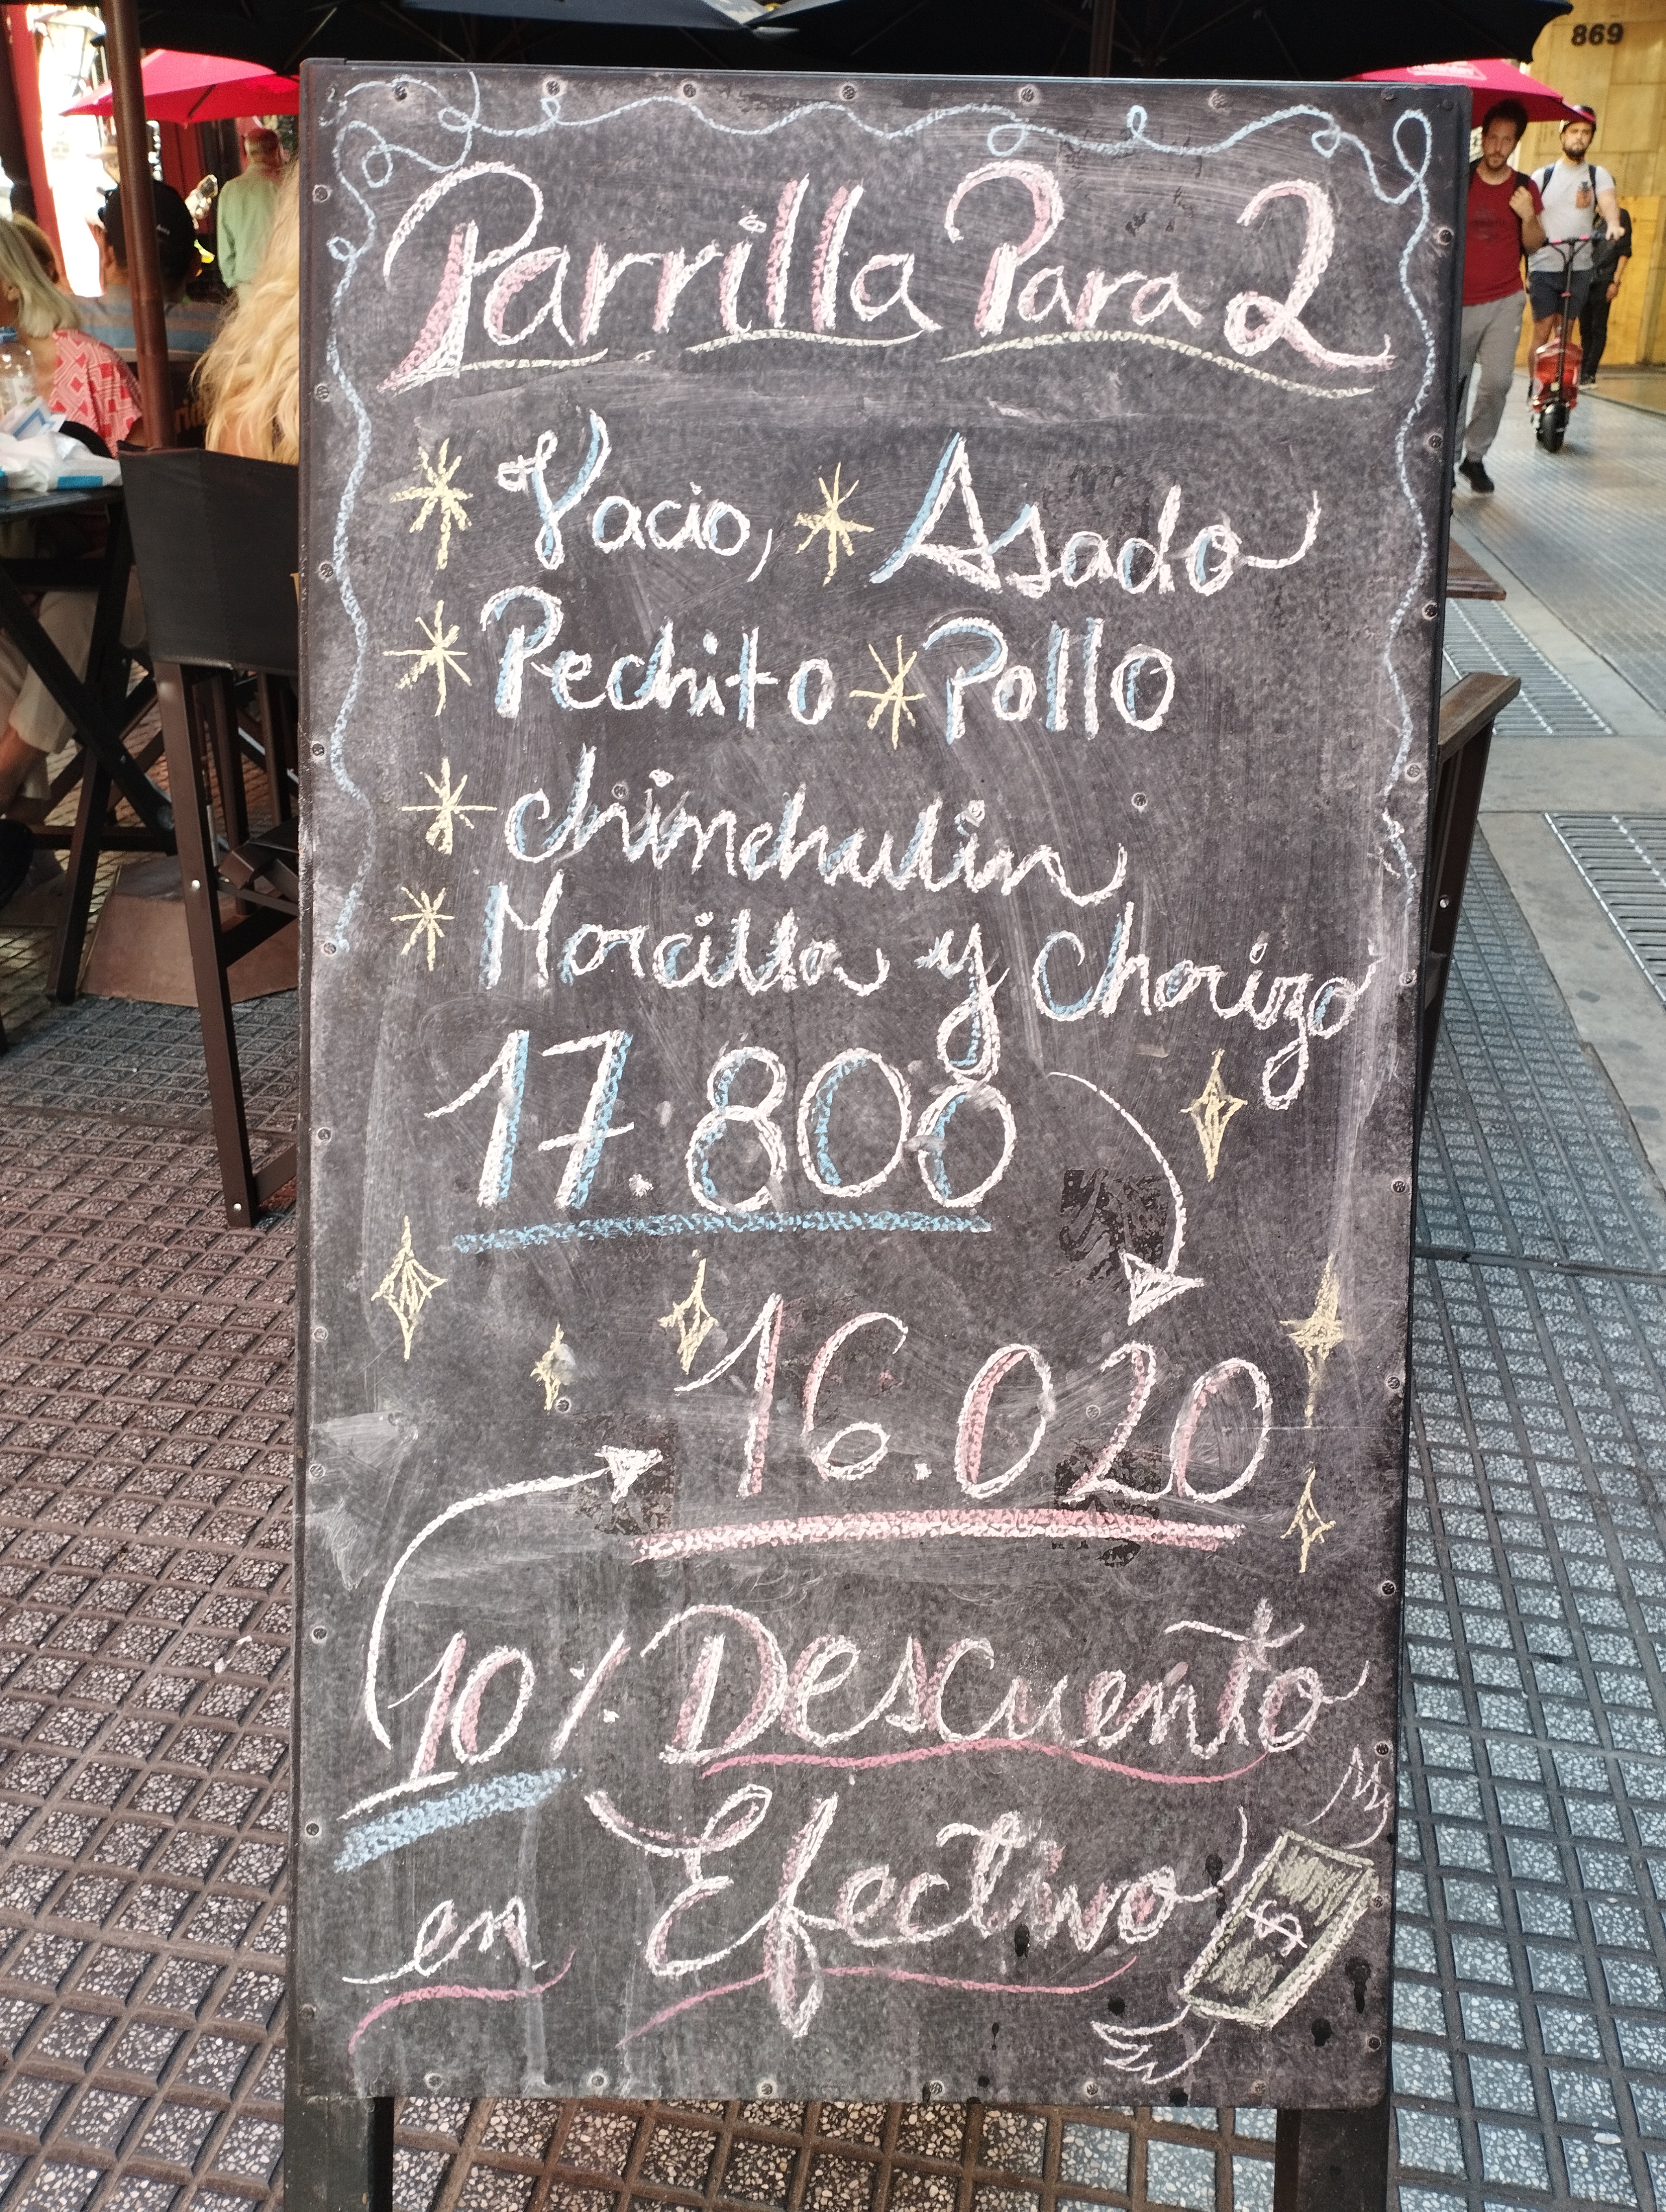 869
Parrilla Para 2
Vacio, Asado
Pechito Pollo
chinchulin
Morcilla y Chorizo
17.800
16.020
10% Descuento
en Efectivo
$